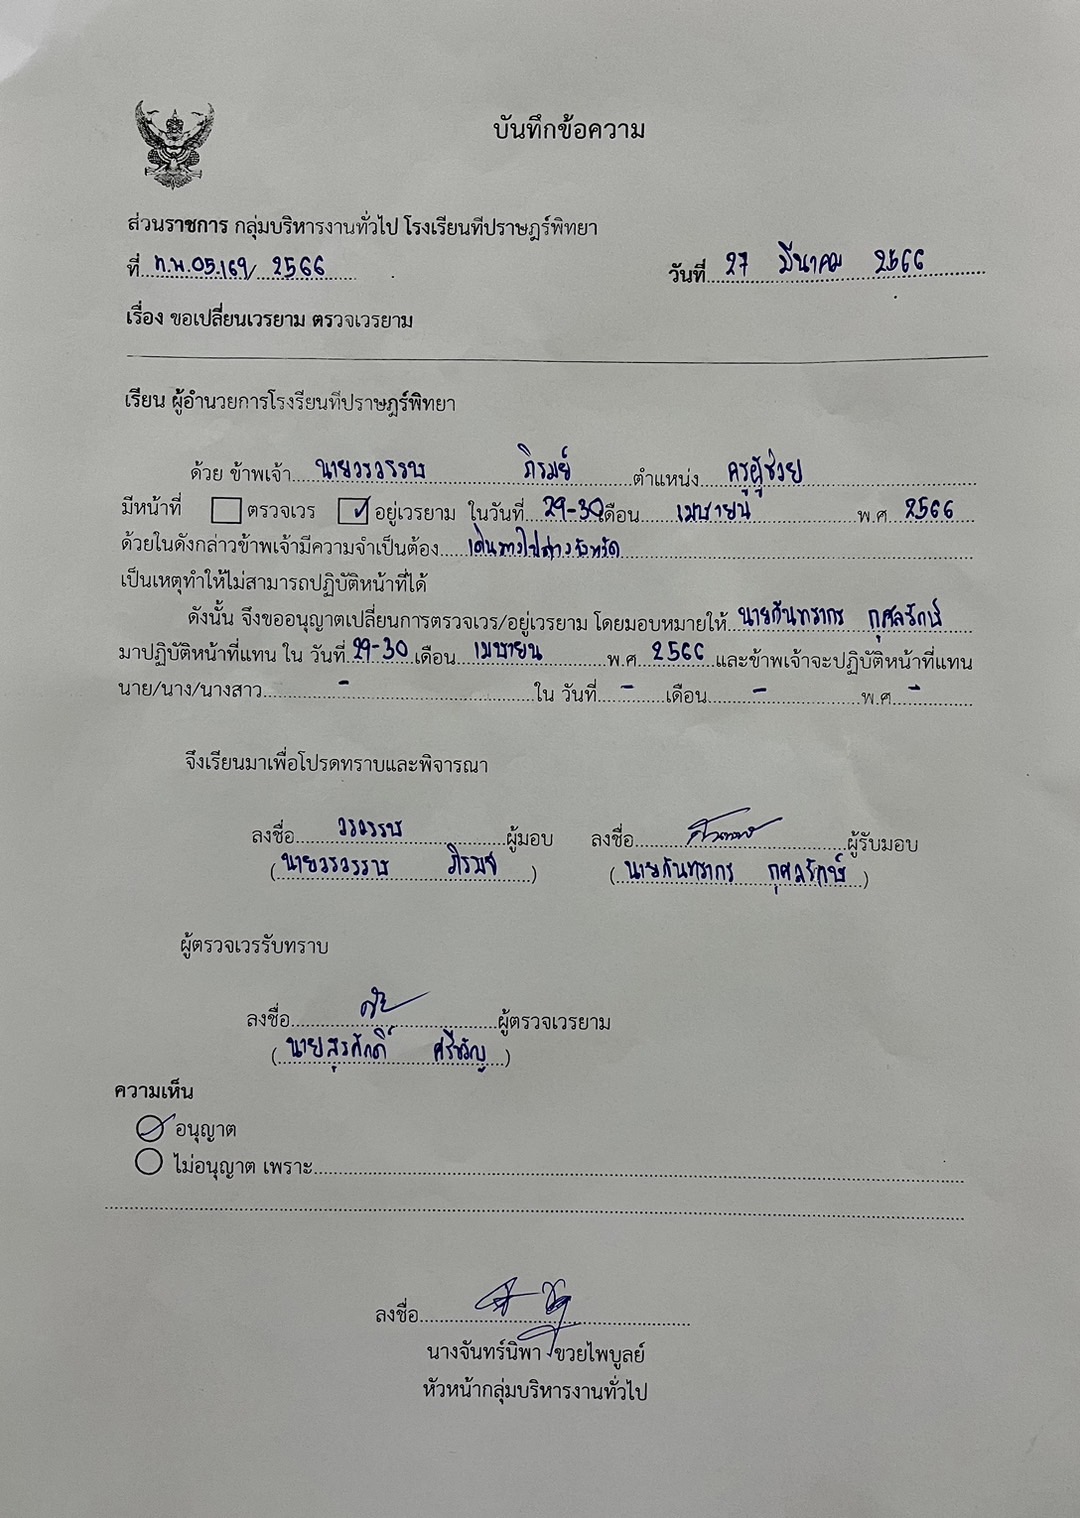 บันทึกข้อความ
ส่วนราชการ กลุ่มบริหารงานทั่วไป โรงเรียนทีปราษฎร์พิทยา
ที่ ท.พ.05.169/ 2566 วันที่ 27 มีนาคม 2566
เรื่อง ขอเปลี่ยนเวรยาม ตรวจเวรยาม
เรียน ผู้อำนวยการโรงเรียนทีปราษฎร์พิทยา
ด้วย ข้าพเจ้า นายวรวรรธ ภิรมย์ ตำแหน่ง ครูผู้ช่วย
มีหน้าที่ ตรวจเวร อยู่เวรยาม ในวันที่ 29-30 เดือน เมษายน พ.ศ 2566
ด้วยในดังกล่าวข้าพเจ้ามีความจำเป็นต้อง เดินทางไปต่างจังหวัด
เป็นเหตุทำให้ไม่สามารถปฏิบัติหน้าที่ได้
ดังนั้น จึงขออนุญาตเปลี่ยนการตรวจเวร/อยู่เวรยาม โดยมอบหมายให้ นายกันทรากร กุศลรักษ์
มาปฏิบัติหน้าที่แทน ใน วันที่ 29-30 เดือน เมษายน พ.ศ 2566 และข้าพเจ้าจะปฏิบัติหน้าที่แทน
นาย/นาง/นางสาว - ใน วันที่ - เดือน - พ.ศ. -
จึงเรียนมาเพื่อโปรดทราบและพิจารณา
ลงชื่อ วรวรรธ ผู้มอบ ลงชื่อ ผู้รับมอบ
(นายวรวรรธ ภิรมย์) (นายกันทรากร กุศลรักษ์)
ผู้ตรวจเวรรับทราบ
ลงชื่อ ผู้ตรวจเวรยาม
(นายสุรศักดิ์ ศรีขวัญ)
ความเห็น
อนุญาต
ไม่อนุญาต เพราะ
ลงชื่อ
นางจันทร์นิพา ขวยไพบูลย์
หัวหน้ากลุ่มบริหารงานทั่วไป